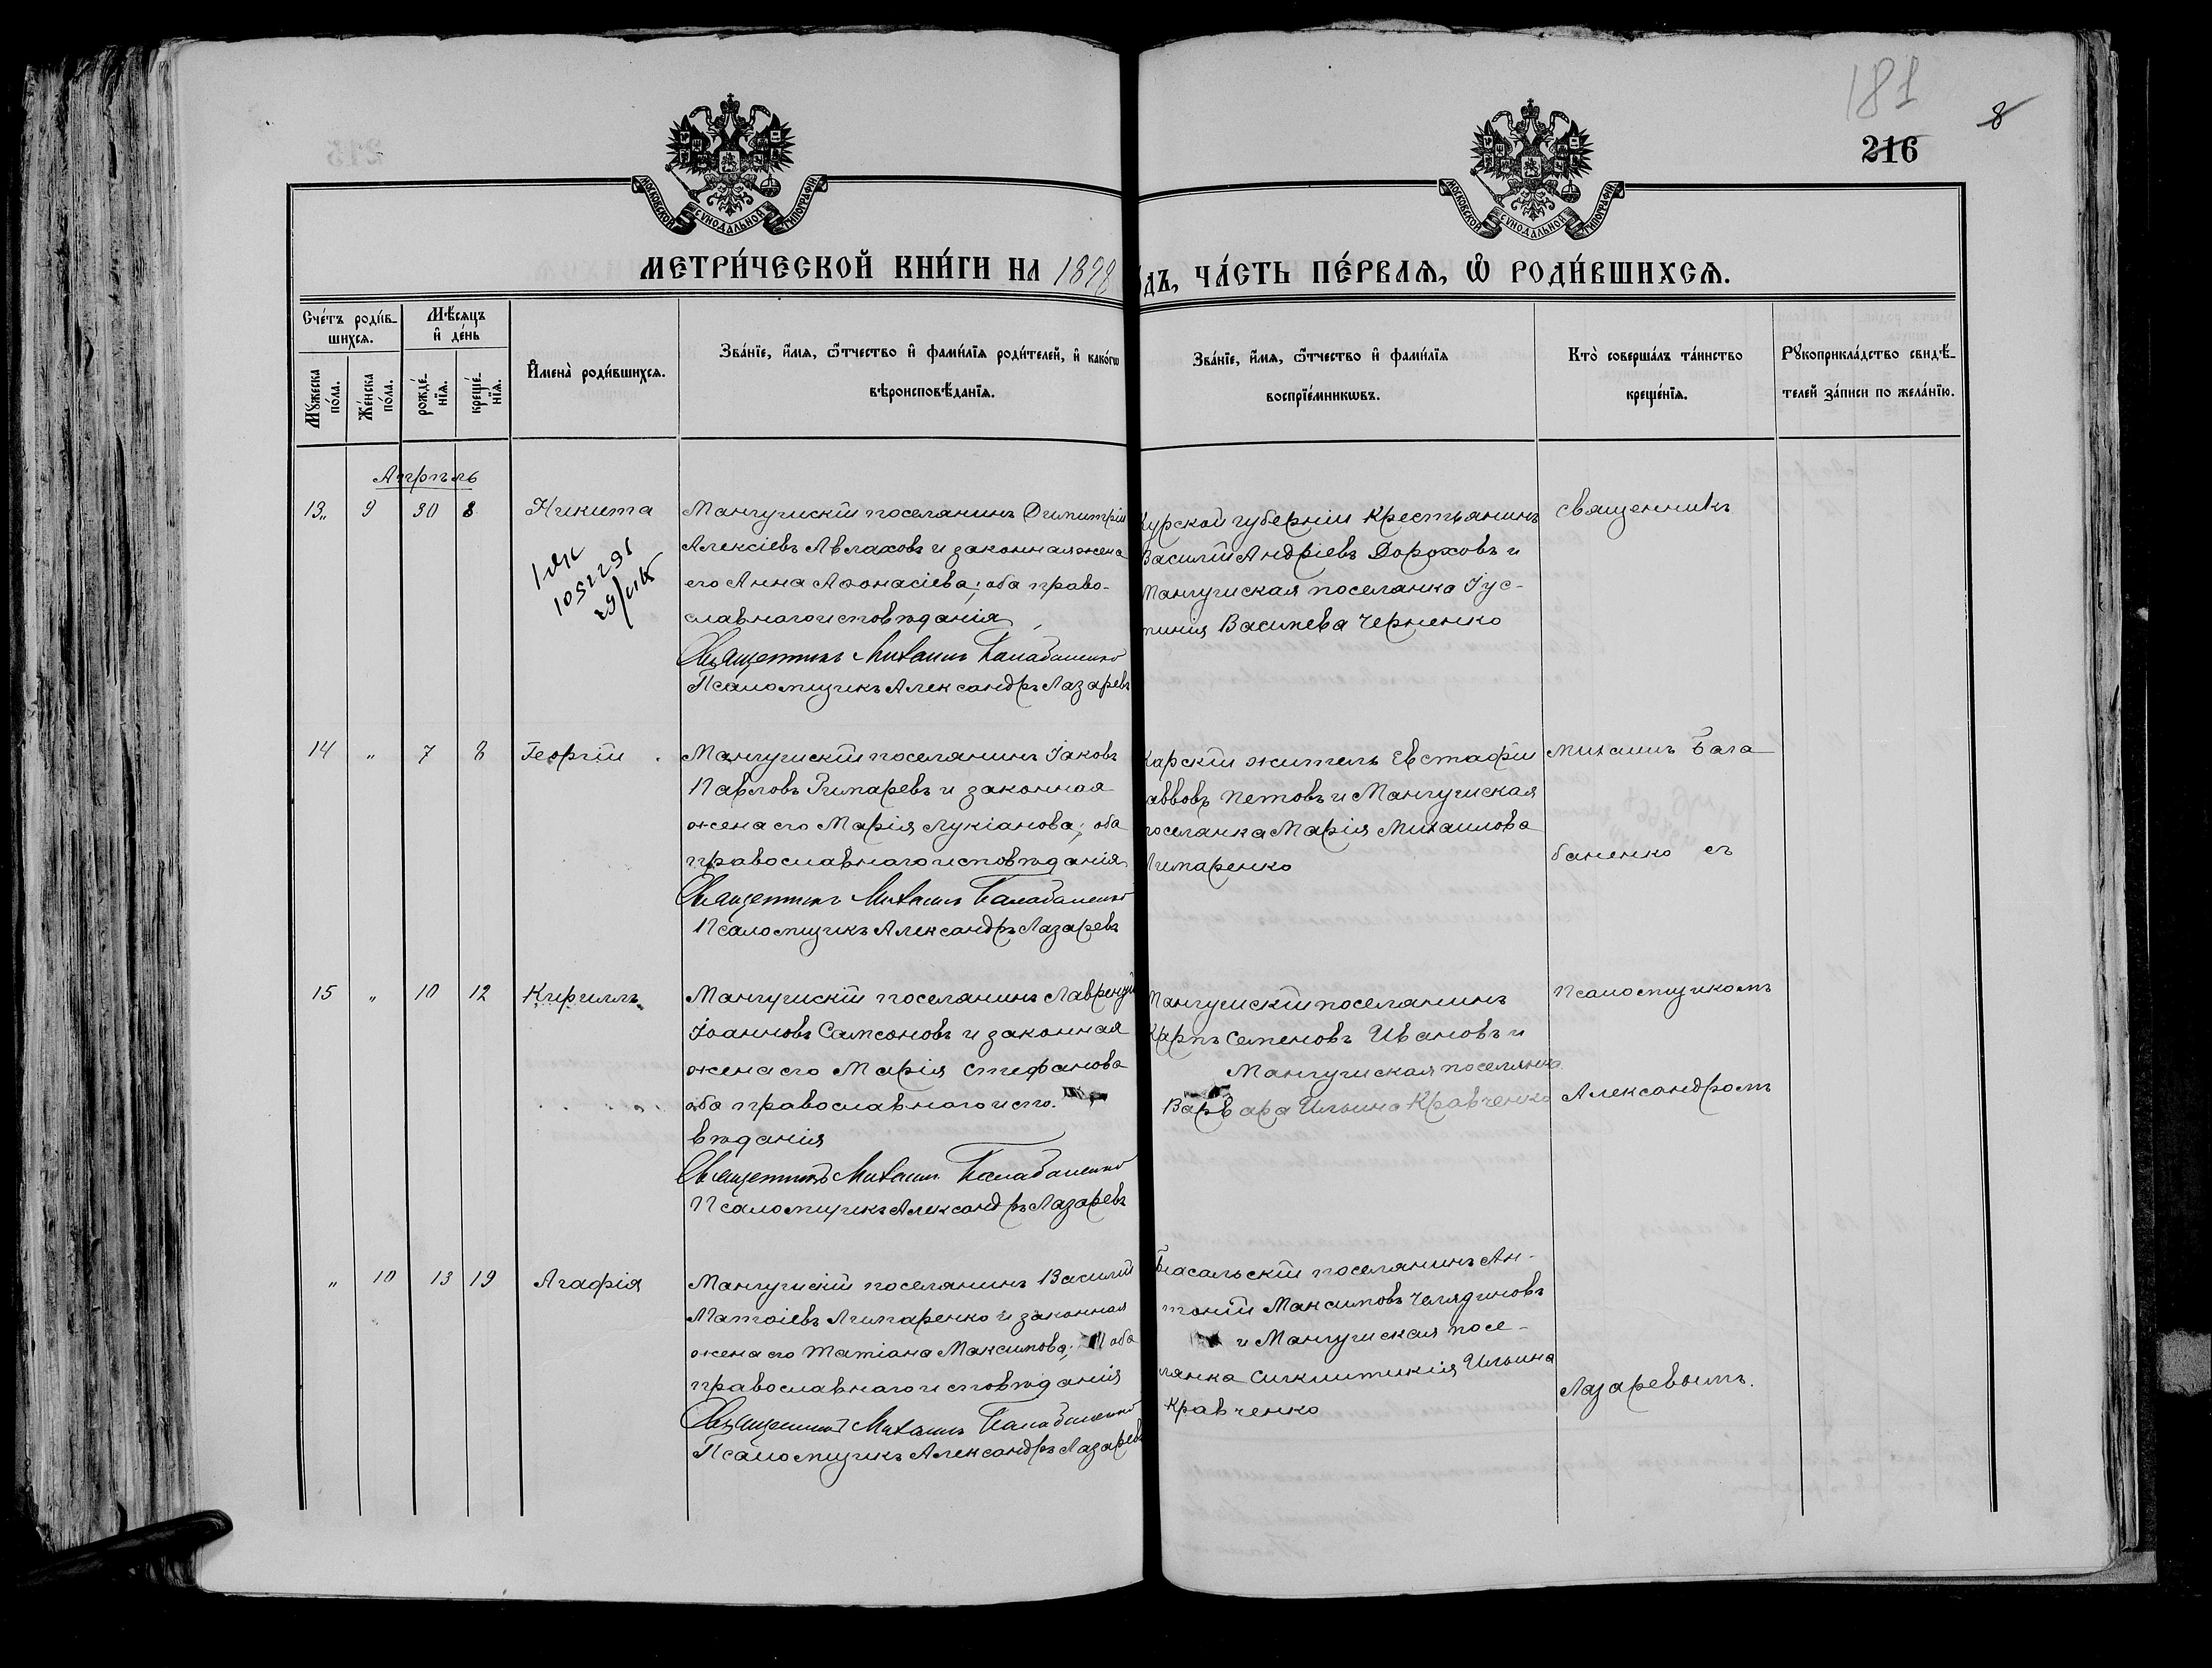 181
8
216
МОСКОВСКОЙ СѴНОДАЛЬНОЙ ТИПОГРАФІИ
МОСКОВСКОЙ СѴНОДАЛЬНОЙ ТИПОГРАФІИ
МЕТРИ́ЧЕСКОЙ КНИ́ГИ НА 1898
ДЪ, ЧА́СТЬ ПЕ́РВАѦ, Ѡ҆ РОДИ́ВШИХСѦ.
Сче́тъ роди́в-
шихся.
Мꙋ́жеска по́ла.
Же́нска по́ла.
Мѣ́сяцъ
и҆ де́нь
рожде́-
нїя.
креще́-
нїя.
И҆мена̀ роди́вшихся.
Зва́нїе, и҆́мя, ѻ҆́тчество и҆ фами́лїя роди́телей, и҆ како́гѡ
вѣроисповѣ́данїя.
Зва́нїе, и҆́мя, ѻ҆́тчество и҆ фами́лїя
воспрїе́мникѡвъ.
Кто̀ соверша́лъ та́инство
креще́нїя.
Рꙋкоприкла́дство свидѣ́-
телей за́писи по жела́нїю.
Апрѣль
13 „ 9 30 8 Никита
Мангушскій поселянинъ Димитрій
Алексіевъ Авлаховъ и законная жена
его Анна Аѳонасіева; оба право-
славного исповѣданія
Священникъ Михаилъ Балабаненко
Псаломщикъ Александръ Лазаревъ
Курской губерніи Крестьянинъ
Василій Андріевъ Дороховъ и
Мангушская поселянка Іус-
тинія Василева Черненко
священникъ
1052291
14 „ 7 8 Георгій
Мангушскій поселянинъ Іаковъ
Павловъ Лимаревъ и законная
жена его Марія Лукіанова; оба
православнаго исповѣданія
Священникъ Михаилъ Балабаненко
Псаломщикъ Александръ Лазаревъ
Карскій житель Евстафій
аввовъ Петовъ и Мангушская
поселянка Марія Михаилова
Лимаренко
Михаилъ Бала
баненко съ
15 „ 10 12 Кириллъ
Мангушскій поселянинъ Лаврентій
Іоанновъ Самсоновъ и законная
жена его Марія Стефанова
оба православнаго испо-
вѣданія
Священникъ Михаилъ Балабаненко
Псаломщикъ Александръ Лазаревъ
Мангушскій поселянинъ
Карпъ Семеновъ Ивановъ и
Мангушская поселянка
Варвара Ильина Кравченко
Псаломщикомъ
Александромъ
„ 10 13 19 Агафія
Мангушскій поселянинъ Василій
Матѳіевъ Лимаренко и законная
жена его Татіана Максимова; оба
православнаго исповѣданія
Священникъ Михаилъ Балабаненко
Псаломщикъ Александръ Лазаревъ
Біасальскій поселянинъ Ан-
тоній Максимовъ Челядиновъ
и Мангушская посе-
лянка Сигклитикія Ильина
Кравченко
Лазаревымъ.